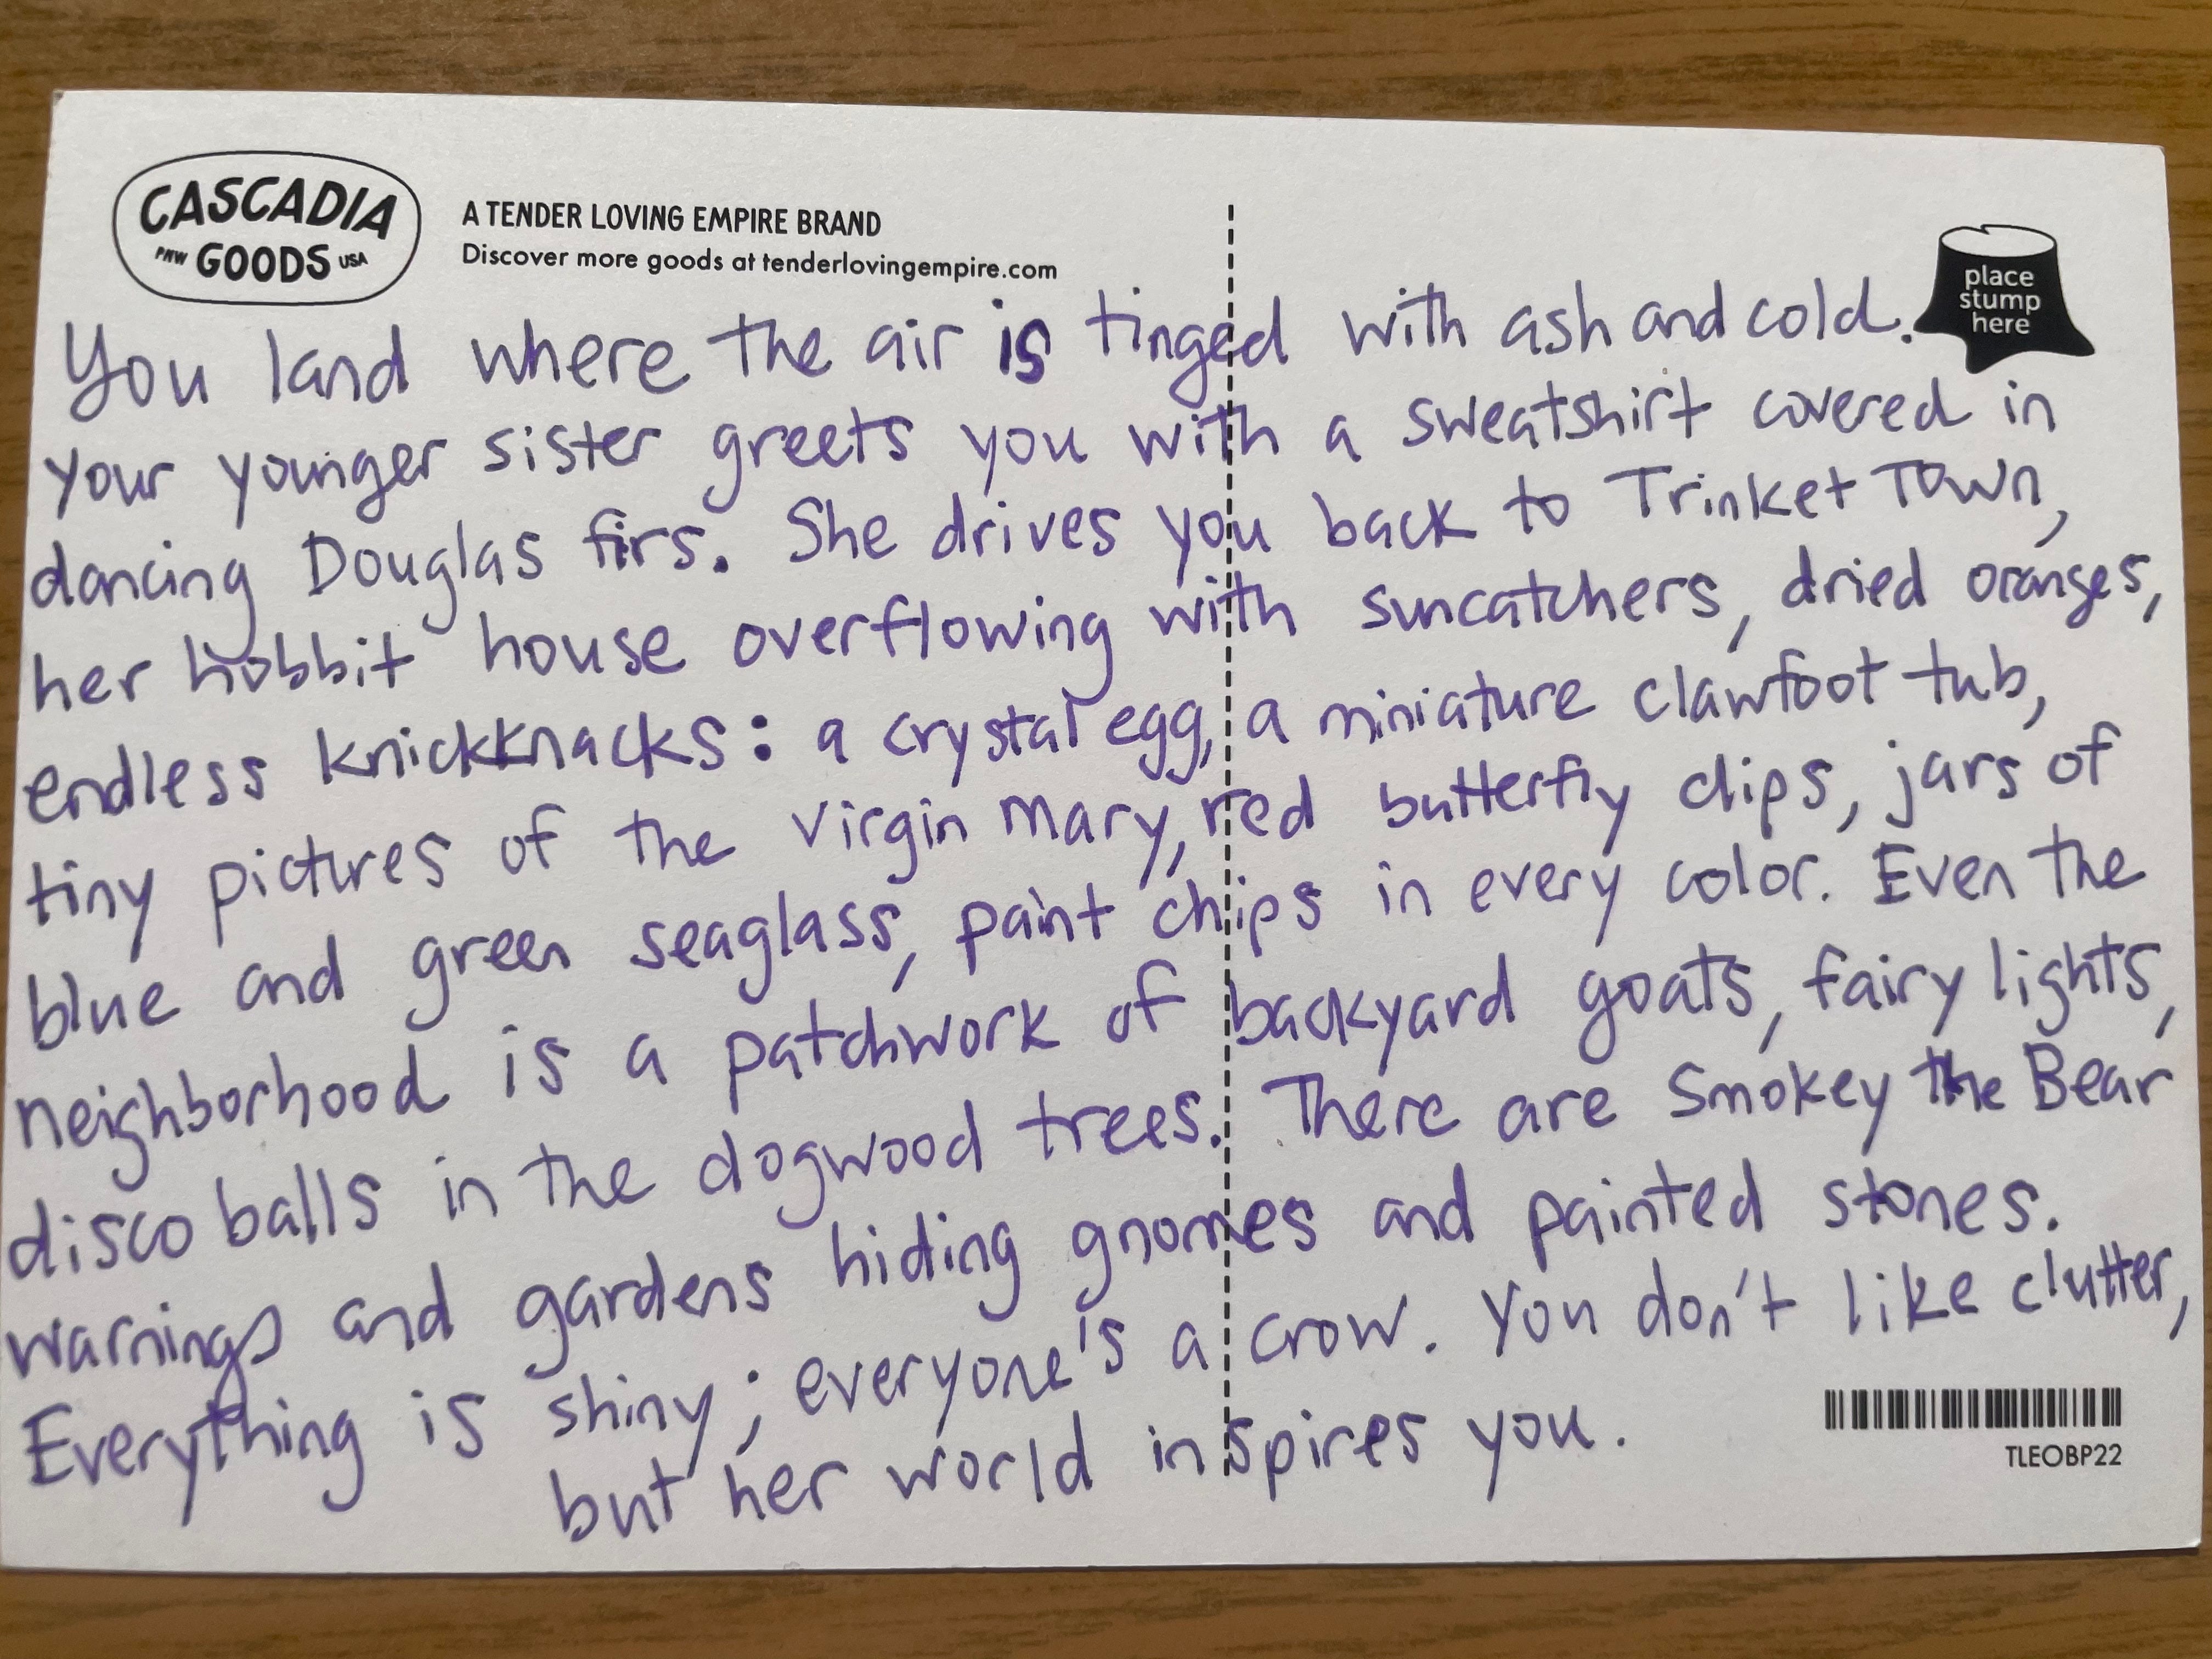 CASCADIA
PNW GOODS USA
A TENDER LOVING EMPIRE BRAND
Discover more goods at tenderlovingempire.com
place
stump
here
You land where the air is tinged with ash and cold.
Your younger sister greets you with a sweatshirt covered in
dancing Douglas firs. She drives you back to Trinket Town,
her hobbit house overflowing with suncatchers, dried oranges,
endless knickknacks: a crystal egg, a miniature clawfoot tub,
tiny pictures of the Virgin Mary, red butterfly clips, jars of
blue and green seaglass, paint chips in every color. Even the
neighborhood is a patchwork of backyard goats, fairy lights,
disco balls in the dogwood trees. There are Smokey the Bear
warnings and gardens hiding gnomes and painted stones.
Everything is shiny; everyone's a crow. You don't like clutter,
but her world inspires you.
TLEOBP22